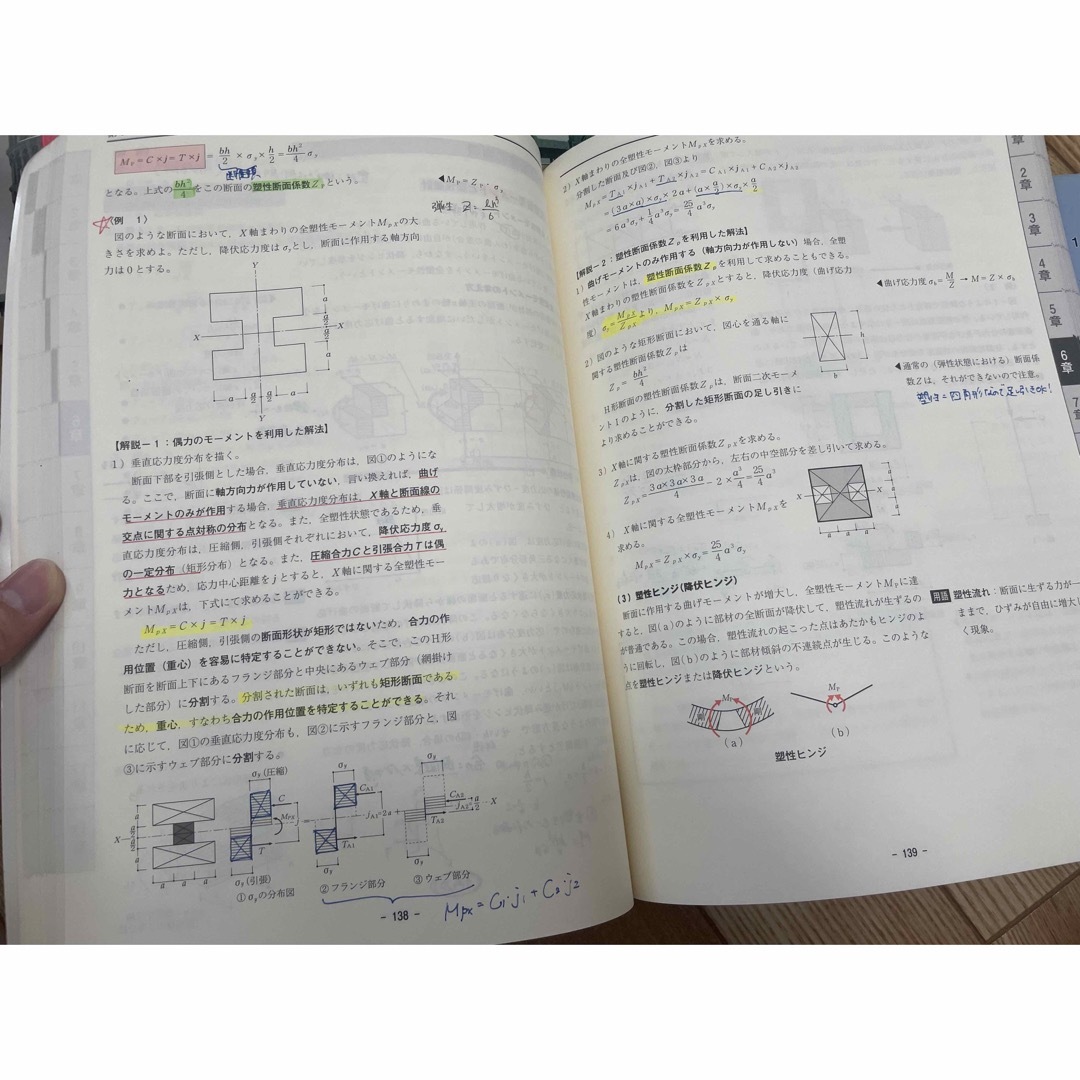 M_P = C×j = T×j = bh/2 × σ_y × h/2 = bh²/4 σ_y
となる。上式の bh²/4 をこの断面の塑性断面係数Z_Pという。
◀M_P = Z_P・σ_y
弾性 Z = bh²/6
〈例 1〉
図のような断面において，X軸まわりの全塑性モーメントM_PXの大
きさを求めよ。ただし，降伏応力度はσ_yとし，断面に作用する軸方向
力は0とする。
Y
X X
a
a/2
a/2
a
a a/2 a/2 a
Y
【解説－1：偶力のモーメントを利用した解法】
1）垂直応力度分布を描く。
断面下部を引張側とした場合，垂直応力度分布は，図①のようにな
る。ここで，断面に軸方向力が作用していない，言い換えれば，曲げ
モーメントのみが作用する場合，垂直応力度分布は，X軸と断面線の
交点に関する点対称の分布となる。また，全塑性状態であるため，垂
直応力度分布は，圧縮側，引張側それぞれにおいて，降伏応力度σ_y
の一定分布（矩形分布）となる。また，圧縮合力Cと引張合力Tは偶
力となるため，応力中心距離をjとすると，X軸に関する全塑性モー
メントM_PXは，下式にて求めることができる。
M_PX = C×j = T×j
ただし，圧縮側，引張側の断面形状が矩形ではないため，合力の作
用位置（重心）を容易に特定することができない。そこで，このH形
断面を断面上下にあるフランジ部分と中央にあるウェブ部分（網掛け
した部分）に分割する。分割された断面は，いずれも矩形断面である
ため，重心，すなわち合力の作用位置を特定することができる。それ
に応じて，図①の垂直応力度分布も，図②に示すフランジ部分と，図
③に示すウェブ部分に分割する。
σ_y（圧縮） σ_y σ_y
a a/2 a/2 a
X
C M_PX j T
= C_A1 j_A1=2a T_A1 + C_A2 j_A2=a/2 T_A2 X
a a a
σ_y（引張） σ_y σ_y
①σ_yの分布図 ②フランジ部分 ③ウェブ部分
M_PX = C₁・j₁ + C₂・j₂
- 138 -
2）X軸まわりの全塑性モーメントM_PXを求める。
分割した断面及び図②，図③より
M_PX = T_A1×j_A1 + T_A2×j_A2 = C_A1×j_A1 + C_A2×j_A2
= (3a×a)×σ_y×2a + (a×a/2)×σ_y×a/2
= 6a³σ_y + 1/4 a³σ_y = 25/4 a³σ_y
【解説－2：塑性断面係数Z_Pを利用した解法】
1）曲げモーメントのみ作用する（軸方向力が作用しない）場合，全塑
性モーメントは，塑性断面係数Z_Pを利用して求めることもできる。
X軸まわりの塑性断面係数をZ_PXとすると，降伏応力度（曲げ応力
度）σ_y = M_PX/Z_PX より，M_PX = Z_PX×σ_y
◀曲げ応力度σ_b = M/Z → M = Z×σ_b
2）図のような矩形断面において，図心を通る軸に
関する塑性断面係数Z_Pは
Z_P = bh²/4
H形断面の塑性断面係数Z_Pは，断面二次モーメ
ントIのように，分割した矩形断面の足し引きに
より求めることができる。
h
b
◀通常の（弾性状態における）断面係
数Zは，それができないので注意。
塑性＝四角形なので足し引きOK！
3）X軸に関する塑性断面係数Z_PXを求める。
Z_PXは，図の太枠部分から，左右の中空部分を差し引いて求める。
Z_PX = 3a×3a×3a/4 − 2×a³/4 = 25/4 a³
X X
a
a
a
a a a
4） X軸に関する全塑性モーメントM_PXを
求める。
M_PX = Z_PX×σ_y = 25/4 a³σ_y
（3）塑性ヒンジ（降伏ヒンジ）
断面に作用する曲げモーメントが増大し，全塑性モーメントM_Pに達
すると，図(a)のように部材の全断面が降伏して，塑性流れが生ずるの
が普通である。この場合，塑性流れの起こった点はあたかもヒンジのよ
うに回転し，図(b)のように部材傾斜の不連続点が生じる。このような
点を塑性ヒンジまたは降伏ヒンジという。
用語 塑性流れ：断面に生ずる力が一
ままで，ひずみが自由に増大
く現象。
M_P M_P
（a） （b）
塑性ヒンジ
- 139 -
章
2章
3章
4章
5章
6章
7